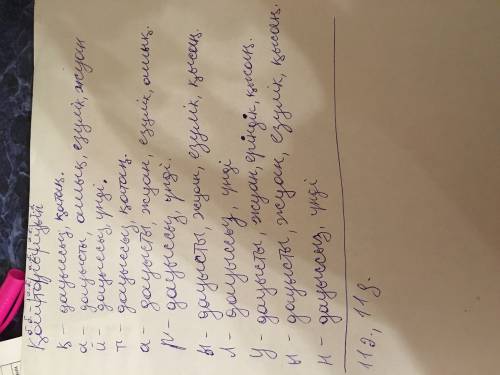 Қайтарылуын
қ - дауыссыз, қатаң.
а - дауысты, ашық, езулік, жуан
й - дауыссыз, үнді.
т - дауыссыз, қатаң.
а - дауысты, жуан, езулік, ашық.
р - дауыссыз, үнді.
ы - дауысты, жуан, езулік, қысаң.
л - дауыссыз, үнді
у - дауысты, жуан, еріндік, қысаң.
ы - дауысты, жуан, езулік, қысаң.
н - дауыссыз, үнді
11ә., 11д.